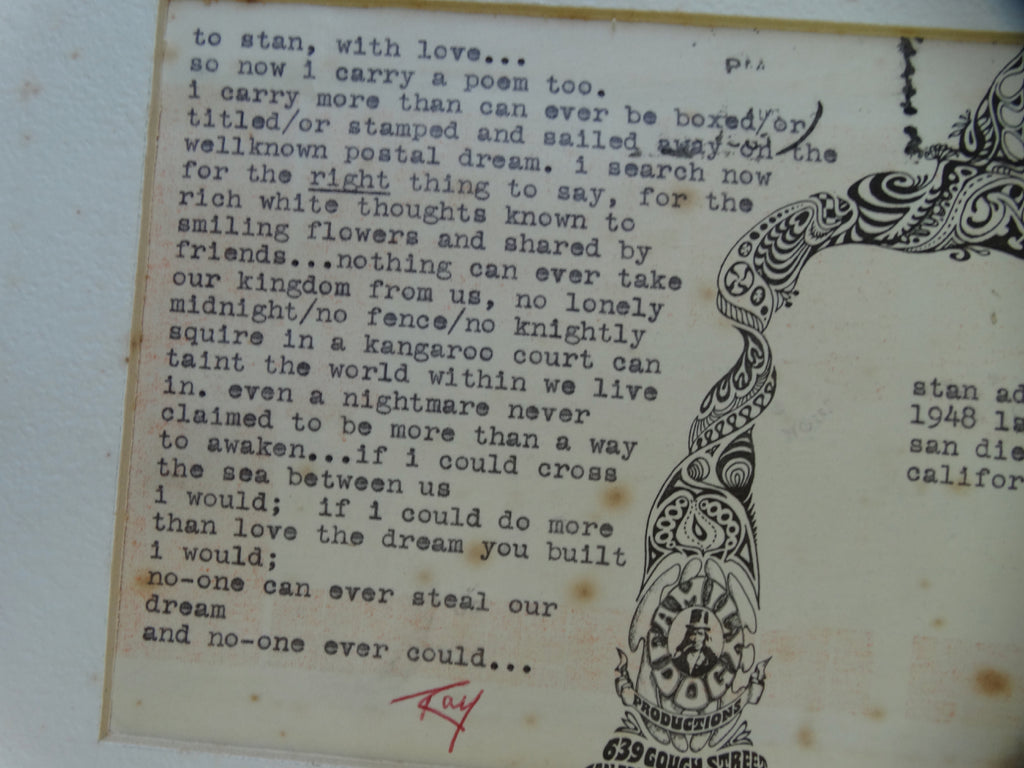 to stan, with love...
so now i carry a poem too.
i carry more than can ever be boxed/or
titled/or stamped and sailed away on the
wellknown postal dream. i search now
for the right thing to say, for the
rich white thoughts known to
smiling flowers and shared by
friends...nothing can ever take
our kingdom from us, no lonely
midnight/no fence/no knightly
squire in a kangaroo court can
taint the world within we live
in. even a nightmare never
claimed to be more than a way
to awaken...if i could cross
the sea between us
i would; if i could do more
than love the dream you built
i would;
no-one can ever steal our
dream
and no-one ever could...
PM
stan ad
1948 la
san die
califor
FAMILY
DOG
PRODUCTIONS
639 GOUGH STREET